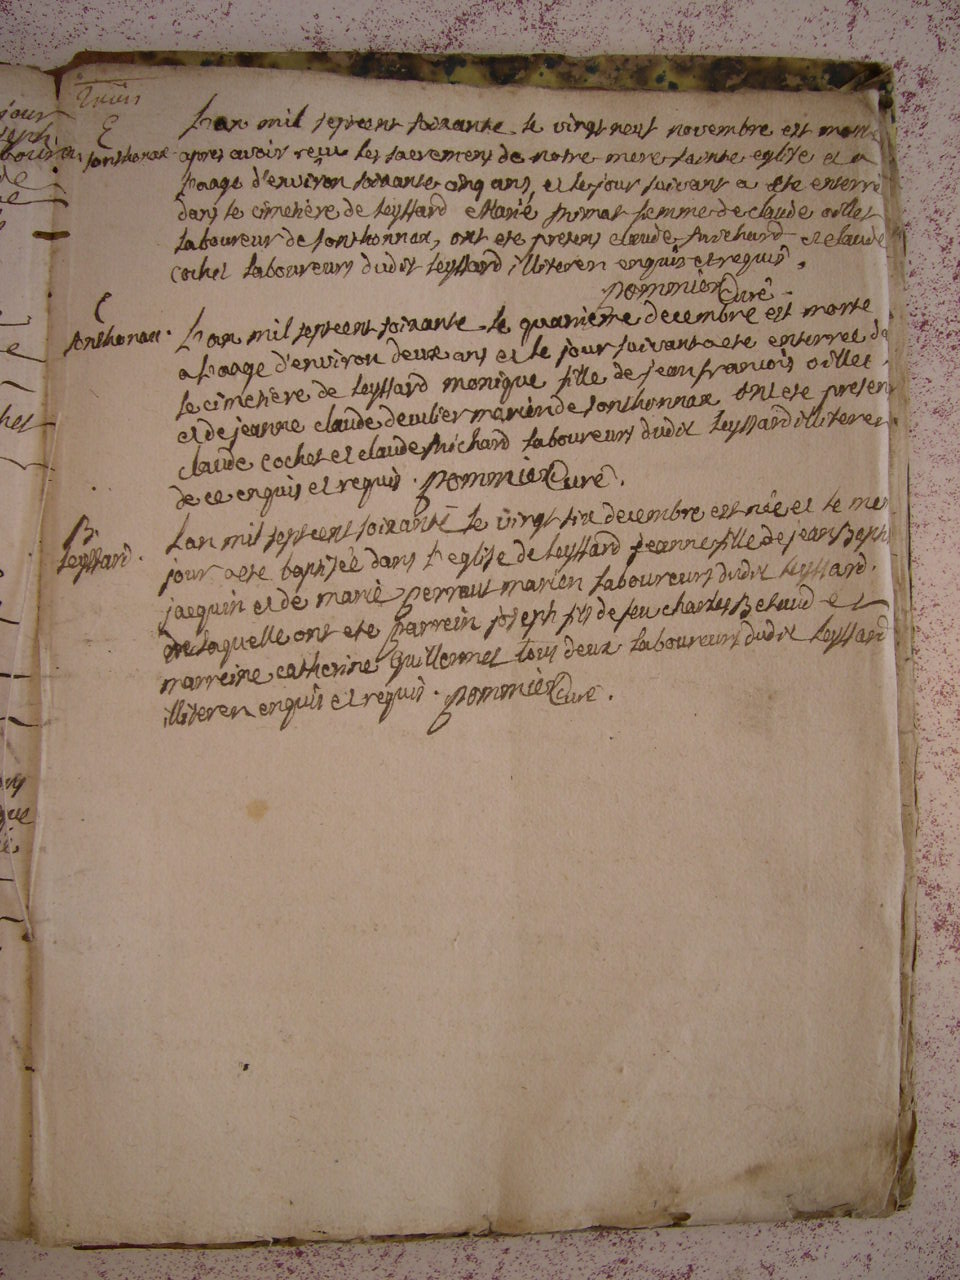 E
Sonthonax
L'an mil septcent soixante le vingt neuf novembre est morte
apres avoir reçu les sacremens de notre mere sainte eglise et a
l'aage d'environ soixante cinq ans, et le jour suivant a ete enterré
dans le cimetière de leyssard Marie femme de claude oillet
laboureur de sonthonnax, ont ete presens claude Michard et claude
cochet laboureurs dudit leyssard illiteren enquis et requis.
pommier Curé
E
sonthonax
L'an mil septcent soixante le decembre est morte
a l'aage d'environ deux ans et le jour suivant a ete enterree d
le cimetière de leyssard monique fille de jean francois oillet
et de jeanne claude mariés de sonthonnax ont ete presen
claude cochet et claude Michard laboureurs dudit leyssard illiteres
de ce enquis et requis. pommier Curé.
B
leyssard.
L'an mil septcent soixante le vingt six decembre est née et le me
jour a ete baptisée dans l'eglise de leyssard jeanne fille de jean
jacquin et de marie perraut mariés laboureurs dudit leyssard.
de laquelle ont ete parrein joseph fils de feu charles Betaud et
marreine catherine Guillermet tous deux laboureurs dudit leyssard
illiteren enquis et requis. pommier Curé.